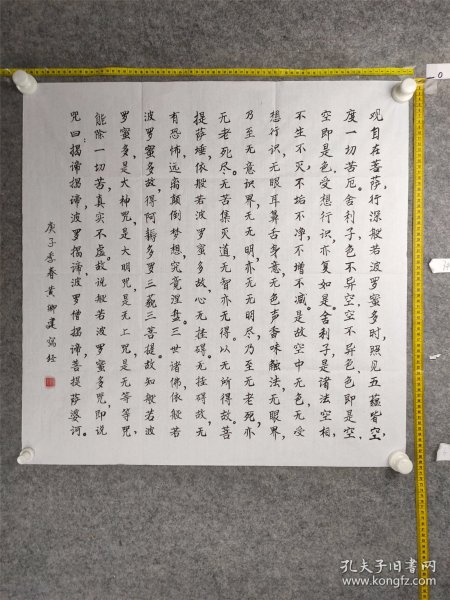 观自在菩萨，行深般若波罗蜜多时，照见五蕴皆空，
度一切苦厄。舍利子，色不异空，空不异色，色即是空，
空即是色，受想行识，亦复如是。舍利子，是诸法空相，
不生不灭，不垢不净，不增不减。是故空中无色，无受
想行识，无眼耳鼻舌身意，无色声香味触法，无眼界，
乃至无意识界，无无明，亦无无明尽，乃至无老死，亦
无老死尽。无苦集灭道，无智亦无得。以无所得故。菩
提萨埵，依般若波罗蜜多故，心无挂碍。无挂碍故，无
有恐怖，远离颠倒梦想，究竟涅盘。三世诸佛，依般若
波罗蜜多故，得阿耨多罗三藐三菩提。故知般若波
罗蜜多，是大神咒，是大明咒，是无上咒，是无等等咒，
能除一切苦，真实不虚。故说般若波罗蜜多咒，即说
咒曰：揭谛揭谛，波罗揭谛，波罗僧揭谛，菩提萨婆诃。
庚子季春黄卿建写经
孔夫子旧书网
www.kongfz.com